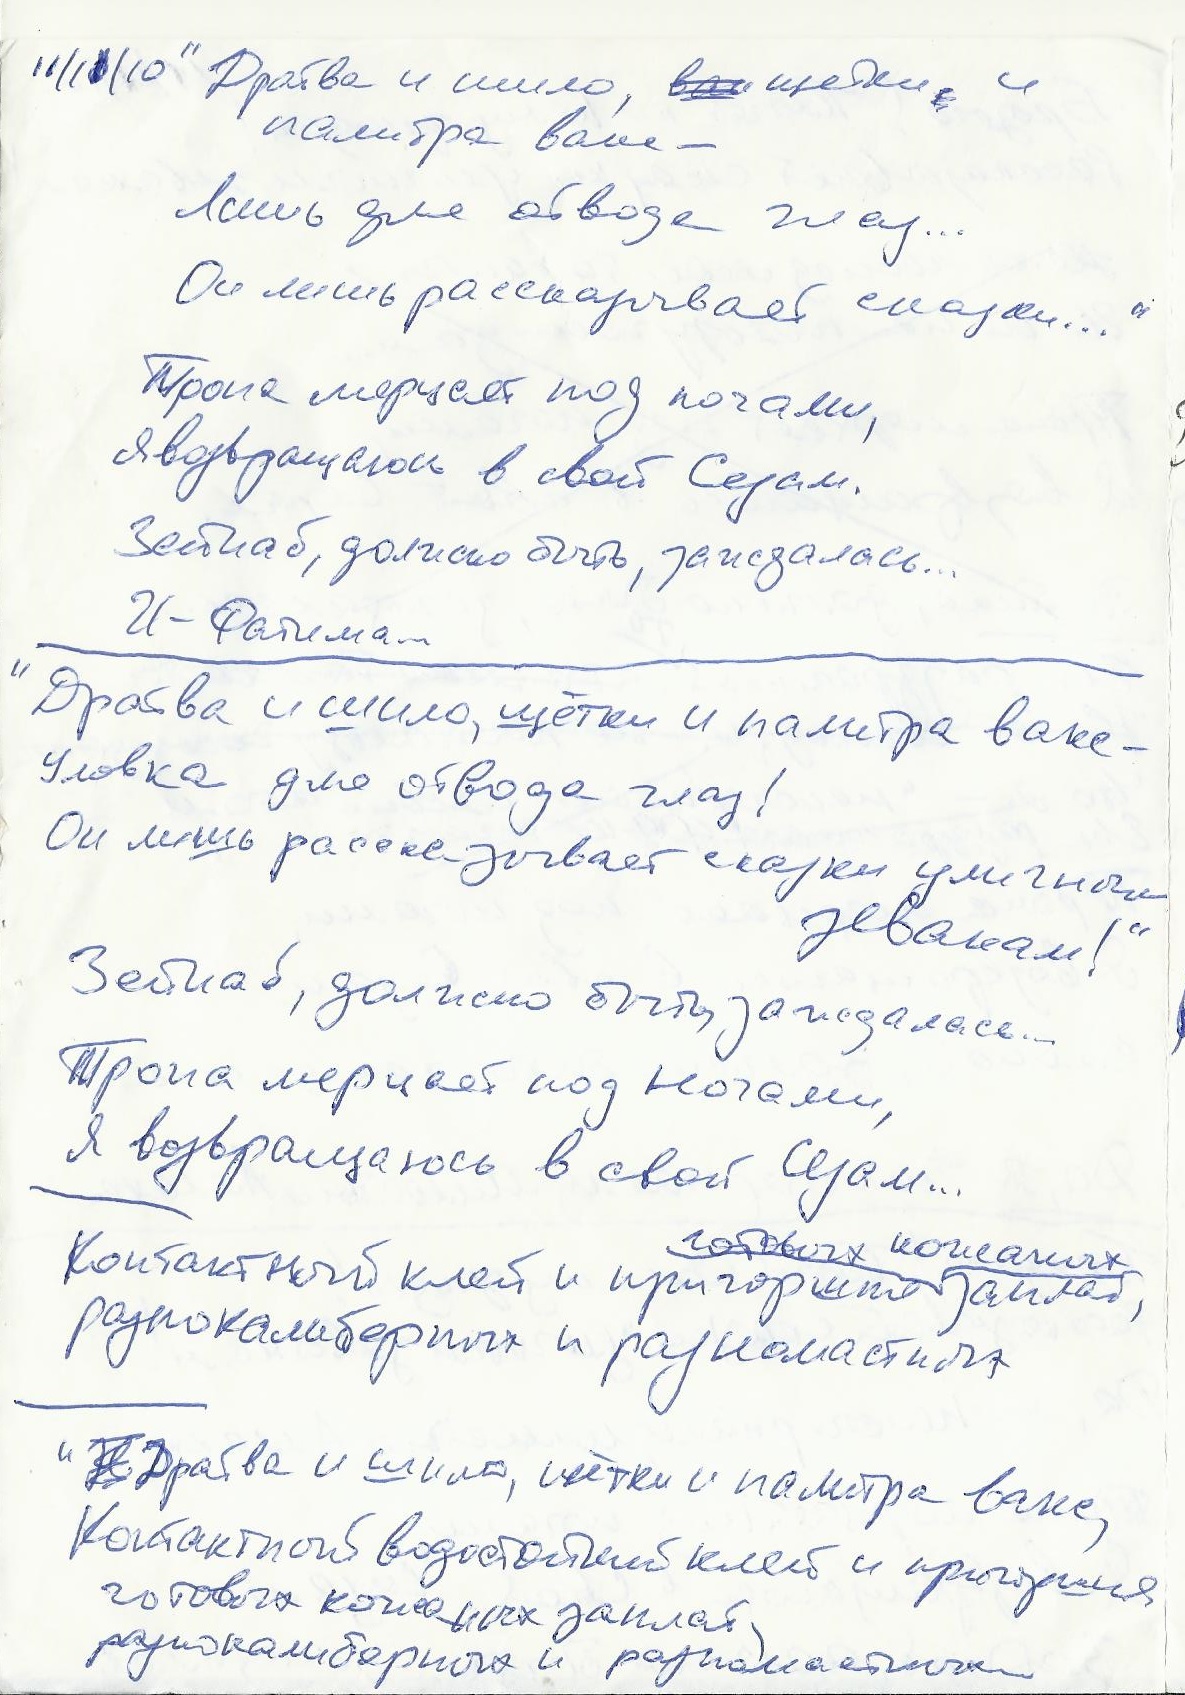 11/11/10 "Дратва и шило, щетки, и
палитра вакс –
Лишь для отвода глаз...
Он лишь рассказывает сказки..."
Тропа мерцает под ногами,
Я возвращаюсь в свой Сезам.
Зейнаб, должно быть, заждалась...
И – Фатима...
"Дратва и шило, щётки и палитра вакс –
Уловка для отвода глаз!
Он лишь рассказывает сказки уличным
зевакам!"
Зейнаб, должно быть, заждалась...
Тропа мерцает под ногами,
Я возвращаюсь в свой Сезам...
готовых кожаных
Контактный клей и пригоршня заплат,
разнокалиберных и разномастных
"Дратва и шило, щётки и палитра вакс,
Контактный водостойкий клей и пригоршня
готовых кожаных заплат,
разнокалиберных и разномастных...